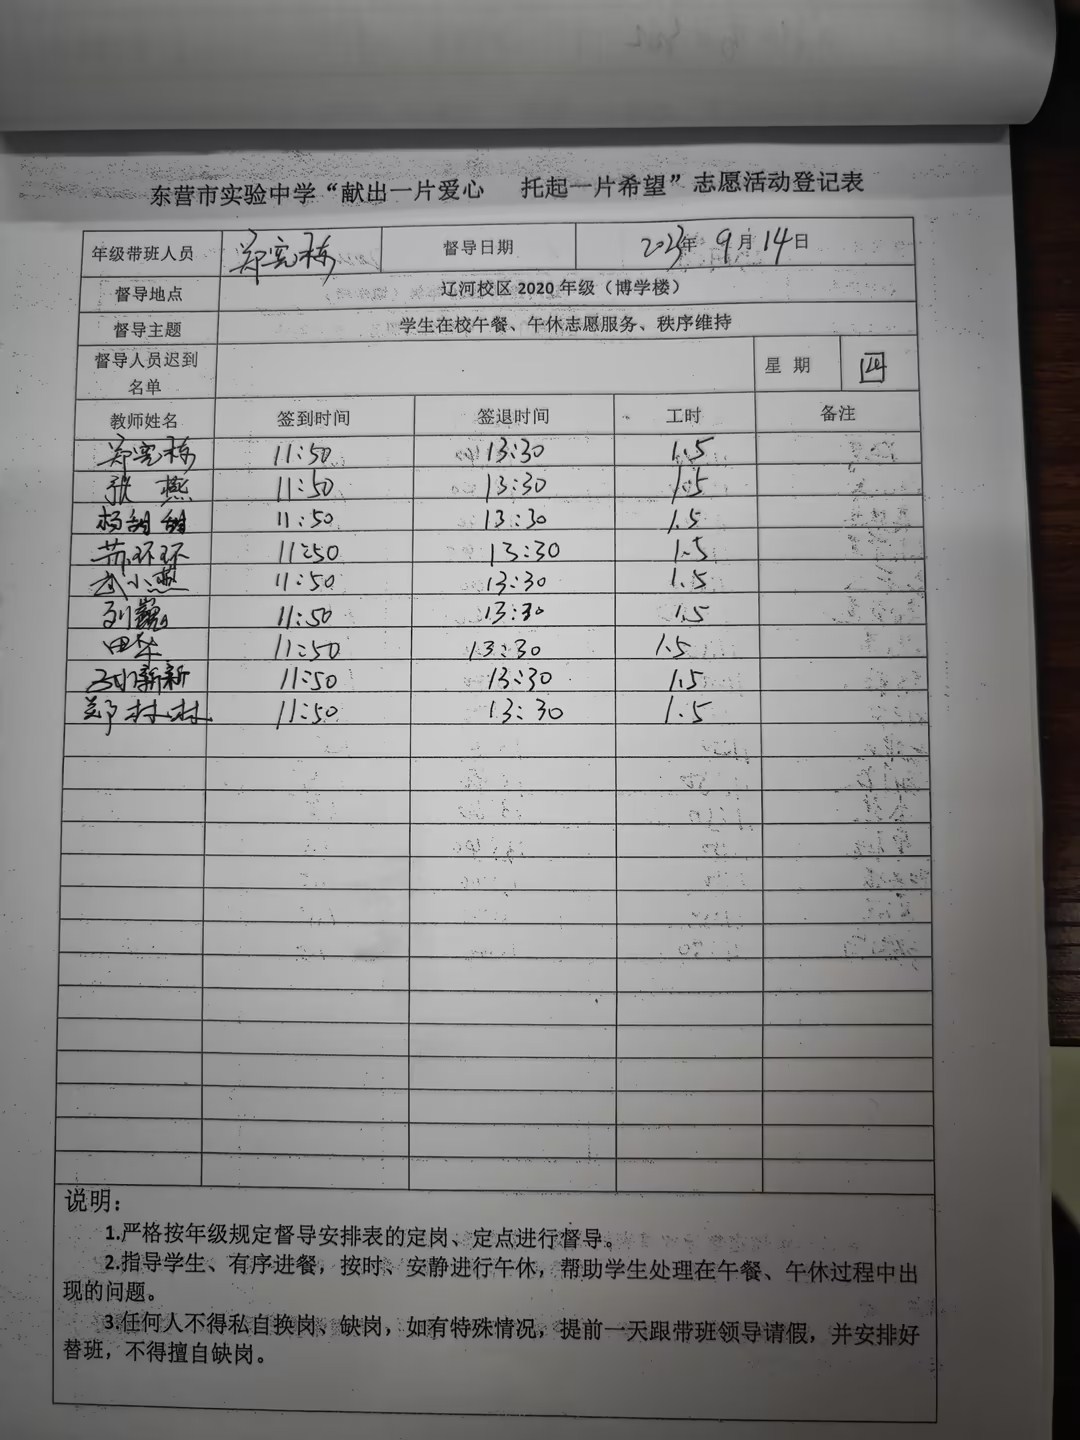 东营市实验中学“献出一片爱心 托起一片希望”志愿活动登记表
年级带班人员 郑宪栋 督导日期 2023年 9月14日
督导地点 辽河校区 2020 年级（博学楼）
督导主题 学生在校午餐、午休志愿服务、秩序维持
督导人员迟到名单 星 期 四
教师姓名 签到时间 签退时间 工时 备注
郑宪栋 11:50 13:30 1.5
张 燕 11:50 13:30 1.5
杨甜甜 11:50 13:30 1.5
苏环环 11:50 13:30 1.5
武小燕 11:50 13:30 1.5
刘巍 11:50 13:30 1.5
田华 11:50 13:30 1.5
新新 11:50 13:30 1.5
郑林林 11:50 13:30 1.5
说明：
1.严格按年级规定督导安排表的定岗、定点进行督导。
2.指导学生、有序进餐，按时、安静进行午休，帮助学生处理在午餐、午休过程中出
现的问题。
3.任何人不得私自换岗、缺岗，如有特殊情况，提前一天跟带班领导请假，并安排好
替班，不得擅自缺岗。